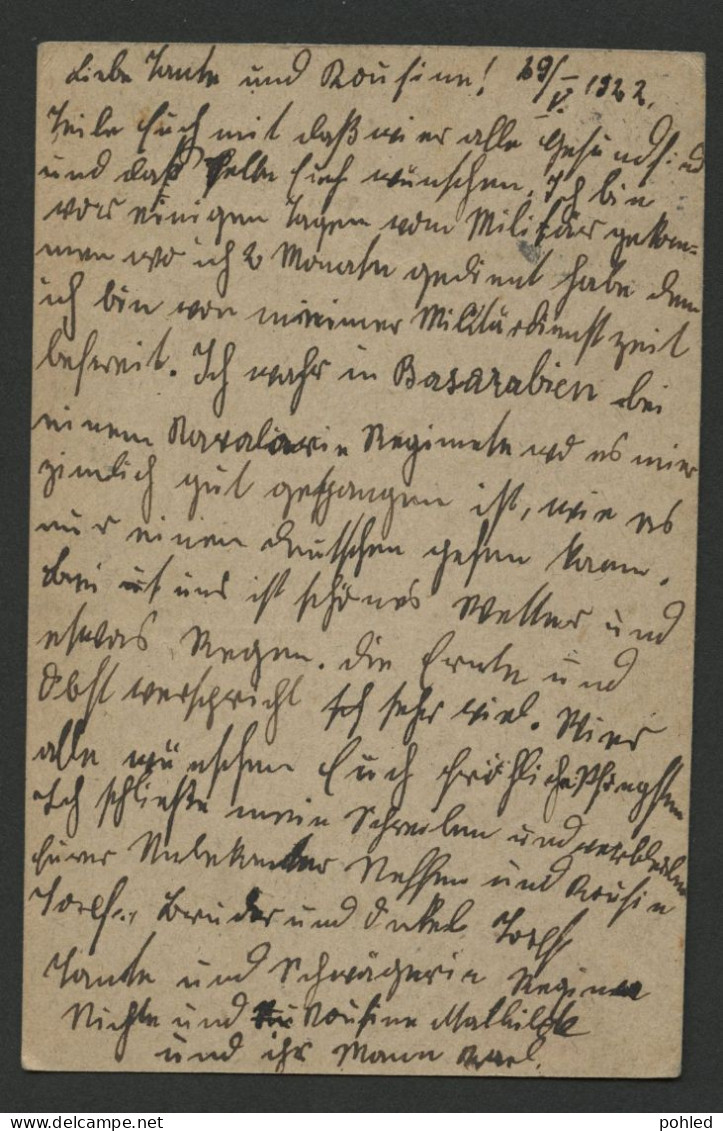 Liebe Tante und Kousine! 29/V. 1922.
Teile Euch mit daß wier alle Gesund sind
und daß selbe Euch wünschen. Ich bin
vor einigen Tagen vom Militär gekom=
men wo ich 2 Monate gedient habe den
ich bin von meiner Militärdienstzeit
befreit. Ich wahr in Basarabien bei
einem Kavalarie Regimete wo es mier
zimlich gut gegangen ist, wie es
nur einen deutschen gehen kann.
Bei uns ist schönes Wetter und
etwas Regen. die Ernte und
Obst verspricht sehr viel. Wier
alle wünschen Euch fröhliche Pfingsten
Ich schließe mein Schreiben und verbleibe
Eurer Unbekanter Neffen und Kousin
Josef., Bruder und Onkel Josef
Tante und Schwägerin Regina
Nichte und Kousine Mathilde
und ihr Mann Karl.
pohled